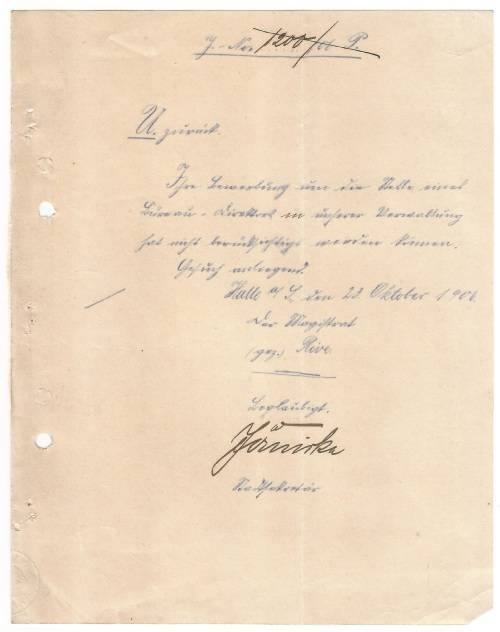 J.-No. 1200/01 P.
U. zurück.
Ihre Bewerbung um die Stelle eines
Büreau-Direktors in unserer Verwaltung
hat nicht berücksichtigt werden können.
Gesuch anliegend.
Halle a/S, den 23. Oktober 190
Der Magistrat
(gez.) Rive
Beglaubigt.
Stadtsekretär